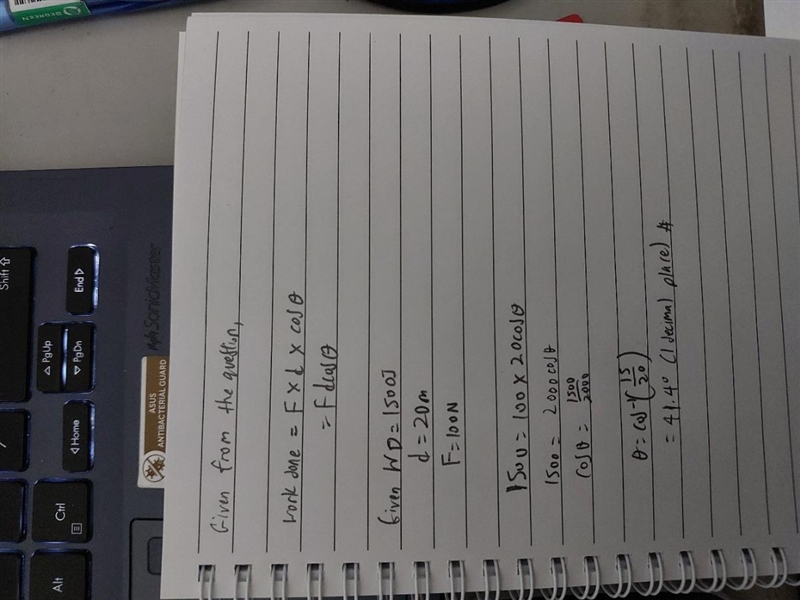 Given from the question,
work done = F × d × cosθ
= F dcosθ
Given WD = 1500J
d = 20m
F = 100N
1500 = 100 × 20cosθ
1500 = 2000cosθ
cosθ = 1500/2000
θ = cos⁻¹(15/20)
= 41.4° (1 decimal place) #
DEGREEN
Shift ⇧
End ▷
△ PgUp
▽ PgDn
◁ Home
Ctrl
Alt
/
SonicMaster
ASUS
ANTIBACTERIAL GUARD